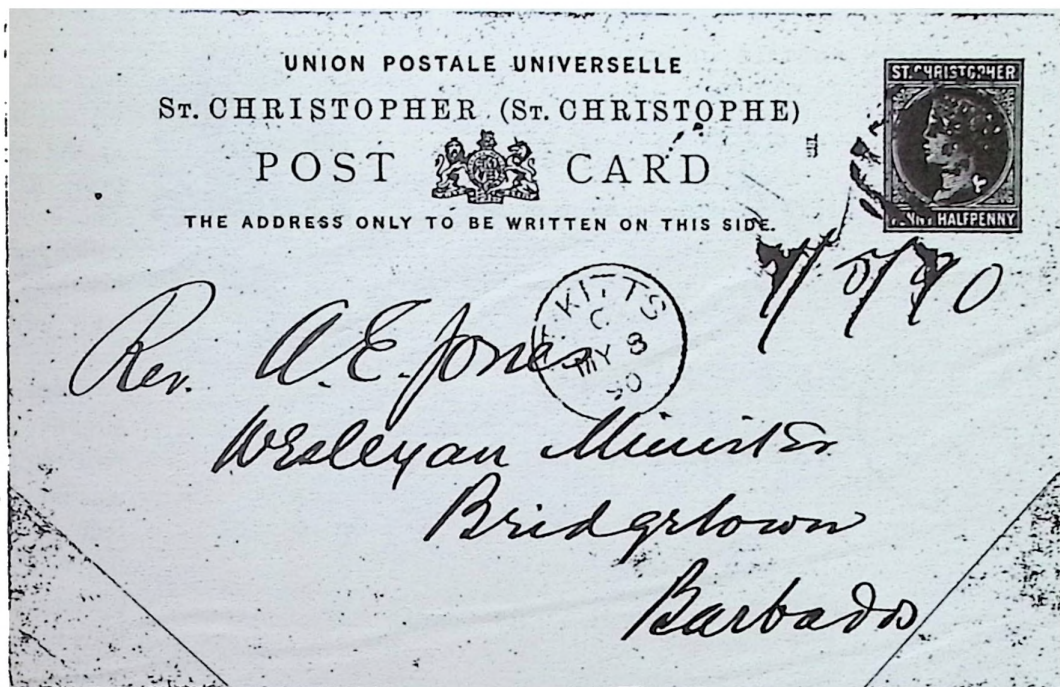 UNION POSTALE UNIVERSELLE
ST. CHRISTOPHER (ST. CHRISTOPHE)
POST CARD
THE ADDRESS ONLY TO BE WRITTEN ON THIS SIDE.
ST. CHRISTOPHER
PENNY HALFPENNY
7/5/90
ST. KITTS
C
MY 3
90
Rev. A. E. Jones
Wesleyan Minister
Bridgetown
Barbados